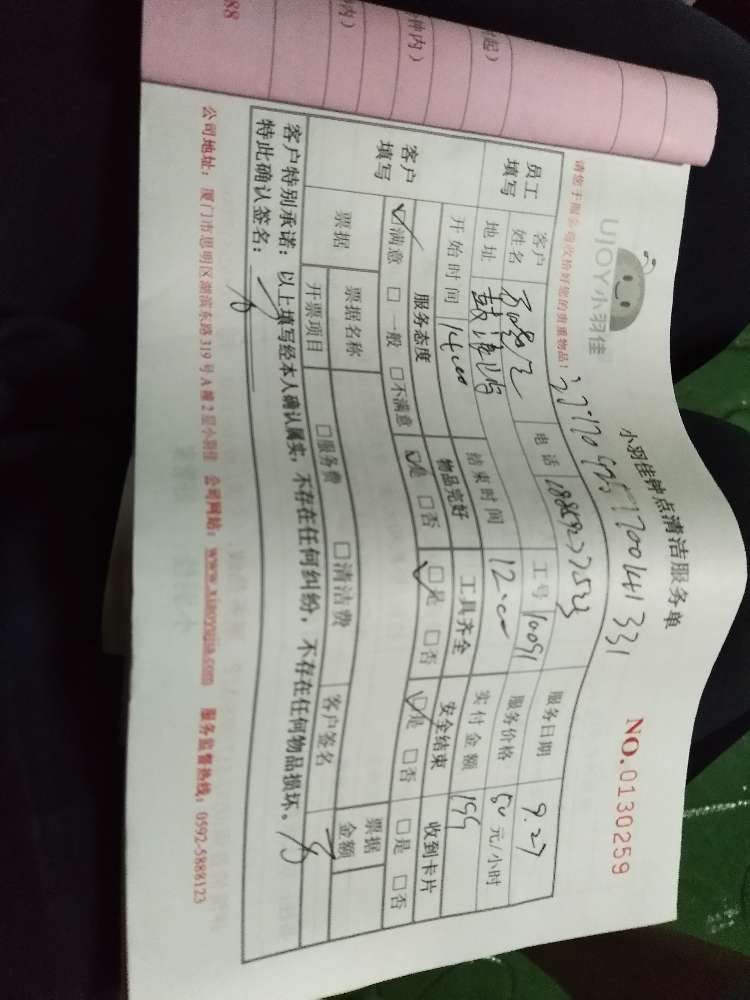 88
种内）
时起）
UJOY小羽佳
小羽佳钟点清洁服务单
NO.0130259
请您于服务前收拾好您的贵重物品！
员工填写
客户姓名
电话
工号 10091
服务日期 9.27
地址
服务价格 50 元/小时
开始时间 14:00
结束时间 12:00
实付金额 199
客户填写
服务态度
物品完好
工具齐全
安全结束
收到卡片
☑满意 □一般 □不满意
☑是 □否
☑是 □否
☑是 □否
□是 □否
票据
票据名称
□服务费
□清洁费
客户签名
票据金额
开票项目
客户特别承诺：以上填写经本人确认属实，不存在任何纠纷，不存在任何物品损坏。
特此确认签名：
公司地址：厦门市思明区湖滨东路319号A幢2层小羽佳 公司网站：www.xiaoyujia.com 服务监督热线：0592-5888123